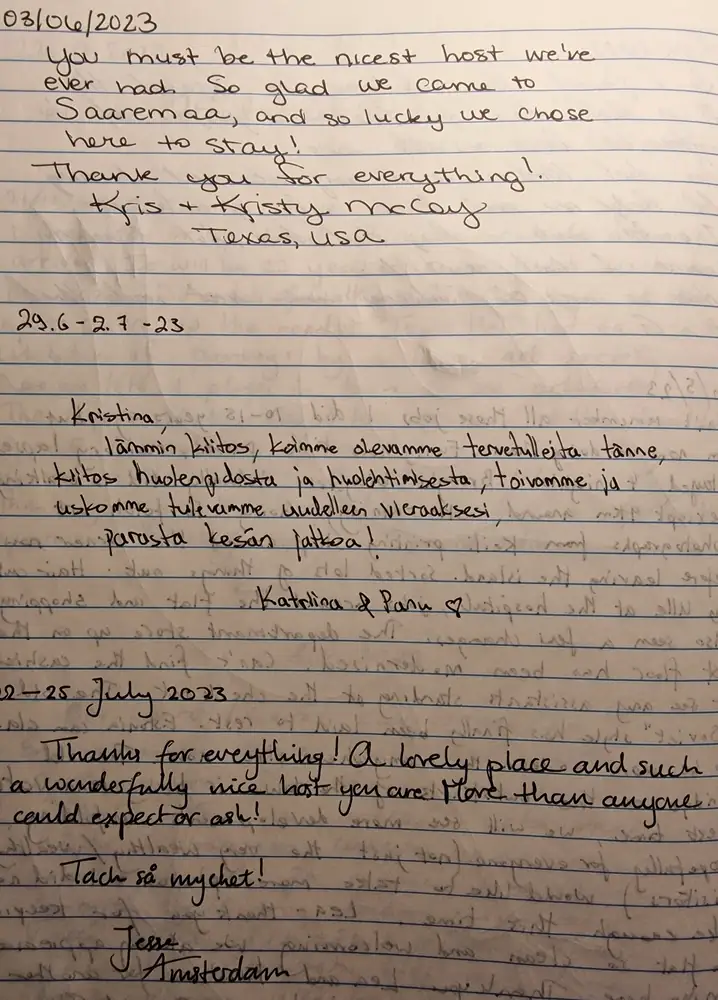 03/06/2023
You must be the nicest host we've
ever had. So glad we came to
Saaremaa, and so lucky we chose
here to stay!
Thank you for everything!
Kris + Kristy McCoy
Texas, USA
29.6 - 2.7 -23
Kristina,
lämmin kiitos, koimme olevamme tervetulleita tänne,
kiitos huolenpidosta ja huolehtimisesta, toivomme ja
uskomme tulevamme uudelleen vieraaksesi,
parasta kesän jatkoa!
Katriina & Panu ♡
2-25 July 2023
Thanks for eveything! A lovely place and such
a wonderfully nice host you are. More than anyone
could expect or ask!
Tack så mycket!
Jesse
Amsterdam